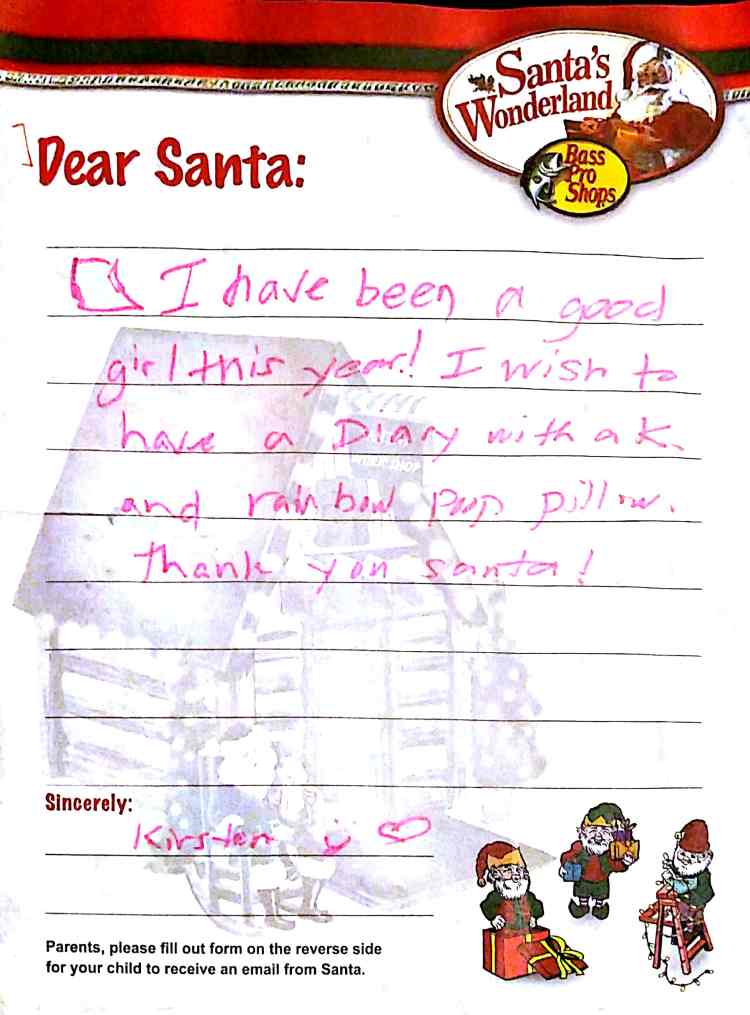 Santa's
Wonderland
Bass
Pro
Shops
Dear Santa:
I have been a good
girl this year! I wish to
have a Diary with a K.
and rainbow poop pillow.
thank you santa!
Sincerely:
Kirsten
Parents, please fill out form on the reverse side
for your child to receive an email from Santa.